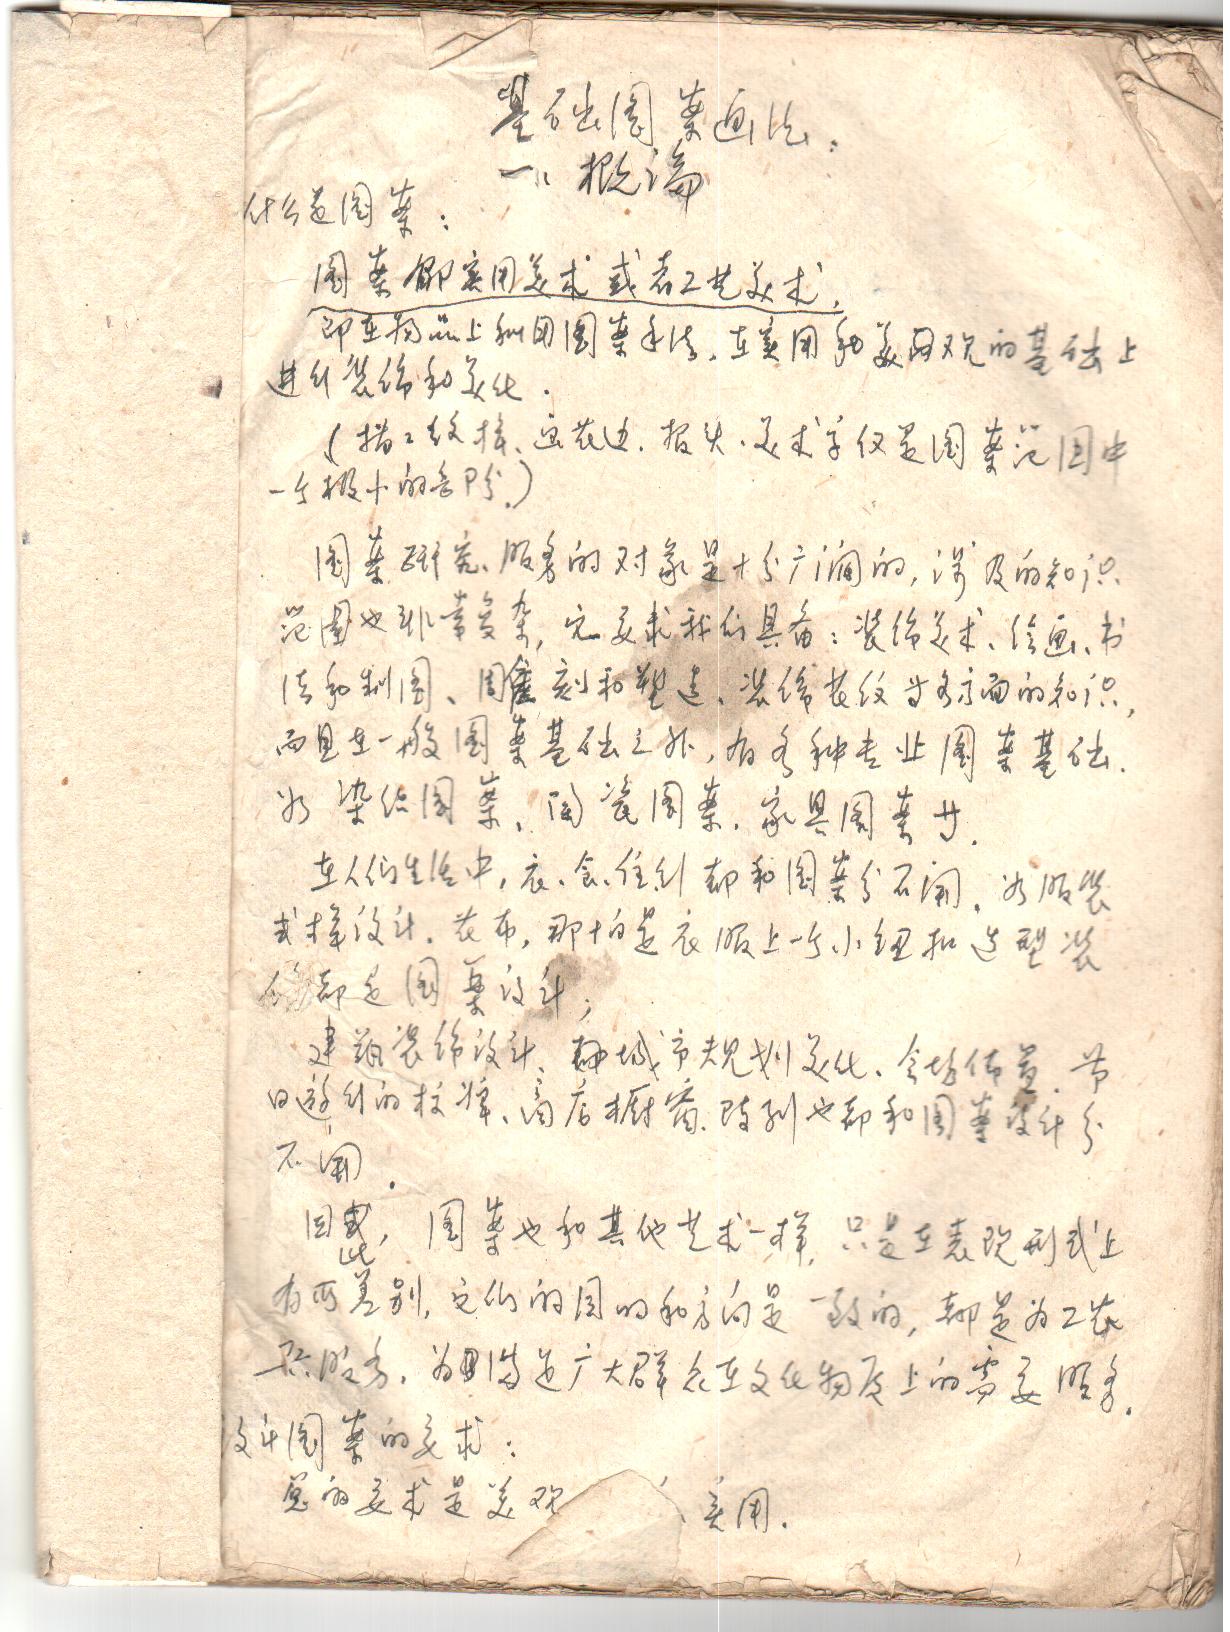 基础图案画法：
一、概论
什么是图案：
图案即实用美术或者工艺美术，
即在物品上利用图案手法，在实用和美观的基础上
进行装饰和美化．
（描纹样、画花边、报头、美术字仅是图案范围中
一个极小的部份．）
图案研究、服务的对象是十分广阔的，涉及的知识
范围也非常复杂，它要求我们具备：装饰美术、绘画、书
法和制图、雕刻和塑造、装饰花纹等各方面的知识，
而且在一般图案基础之外，有各种专业图案基础．
如染织图案、陶瓷图案、家具图案等．
在人们生活中，衣、食、住、行都和图案分不开，如服装
式样设计．花布，那怕是衣服上一个小钮扣造型装
饰都是图案设计；
建筑装饰设计、城市规划美化、会场佈置、节
日游行的校牌、商店橱窗陈列也都和图案设计分
不开．
因此，图案也和其他艺术一样，只是在表现形式上
有所差别，它们的目的和方向是一致的，都是为工农
兵服务，为满足广大群众在文化物质上的需要服务．
设计图案的要求：
总的要求是美观、实用．